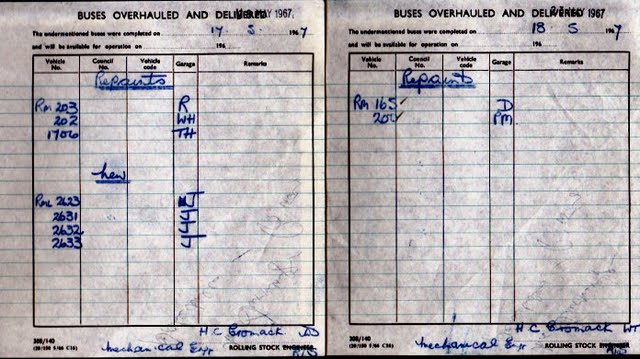 BUSES OVERHAULED AND DELIVERED MAY 1967
The undermentioned buses were completed on 17. 5 1967
and will be available for operation on 196
Vehicle No. Council No. Vehicle code Garage Remarks
Repaints
RM 203 R
202 WH
1706 TH
New
RML 2623
2631
2632
2633
H C Cromack
308/140
Mechanical Exr ROLLING STOCK ENGINEER
BUSES OVERHAULED AND DELIVERED 1967
The undermentioned buses were completed on 18 5 1967
and will be available for operation on 196
Vehicle No. Council No. Vehicle code Garage Remarks
Repaint
RM 165 ✓ D
200 ✓ PM
H C Cromack WT
308/140
Mechanical Exr ROLLING STOCK ENGINEER